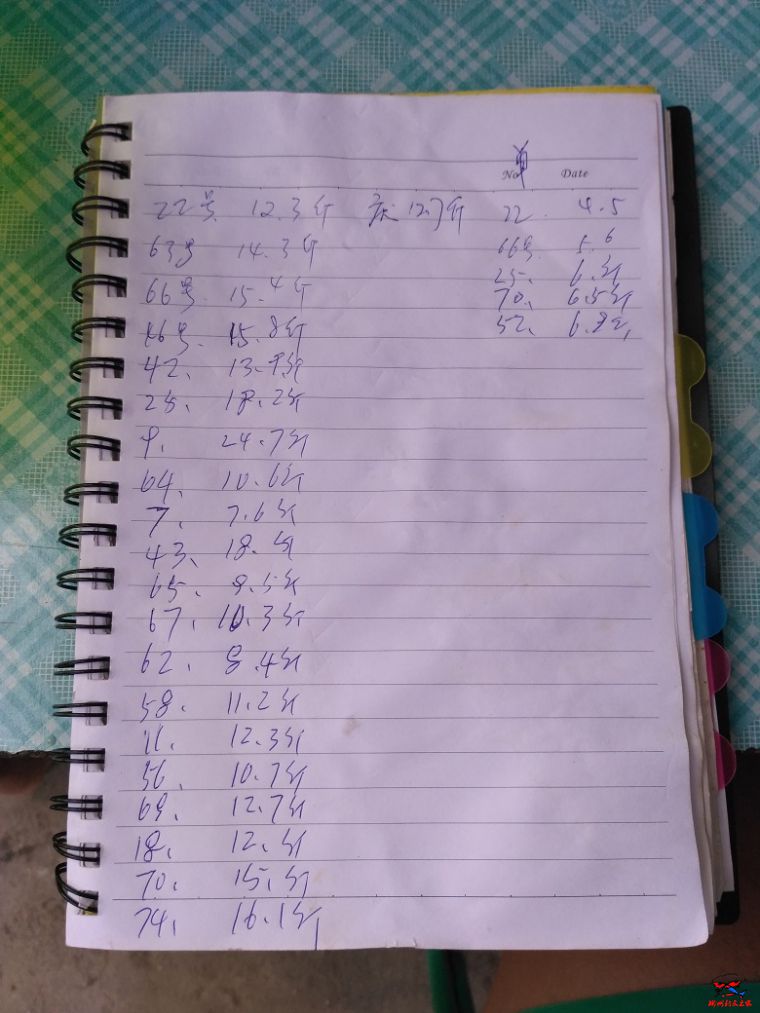 No Date
22号. 12.3斤 12.7斤 22. 4.5
63号 14.3斤 66号. 5.6
66号. 15.4斤 25. 6.斤
16号. 15.8斤 70. 6.5斤
42. 13.9斤 52. 6.8斤
28. 18.2斤
9. 24.7斤
64. 10.6斤
7. 7.6斤
43. 18.斤
65. 9.5斤
67. 10.3斤
62. 8.4斤
58. 11.2斤
11. 12.3斤
56. 10.7斤
69. 12.7斤
18. 12.斤
70. 15.斤
74. 16.1斤